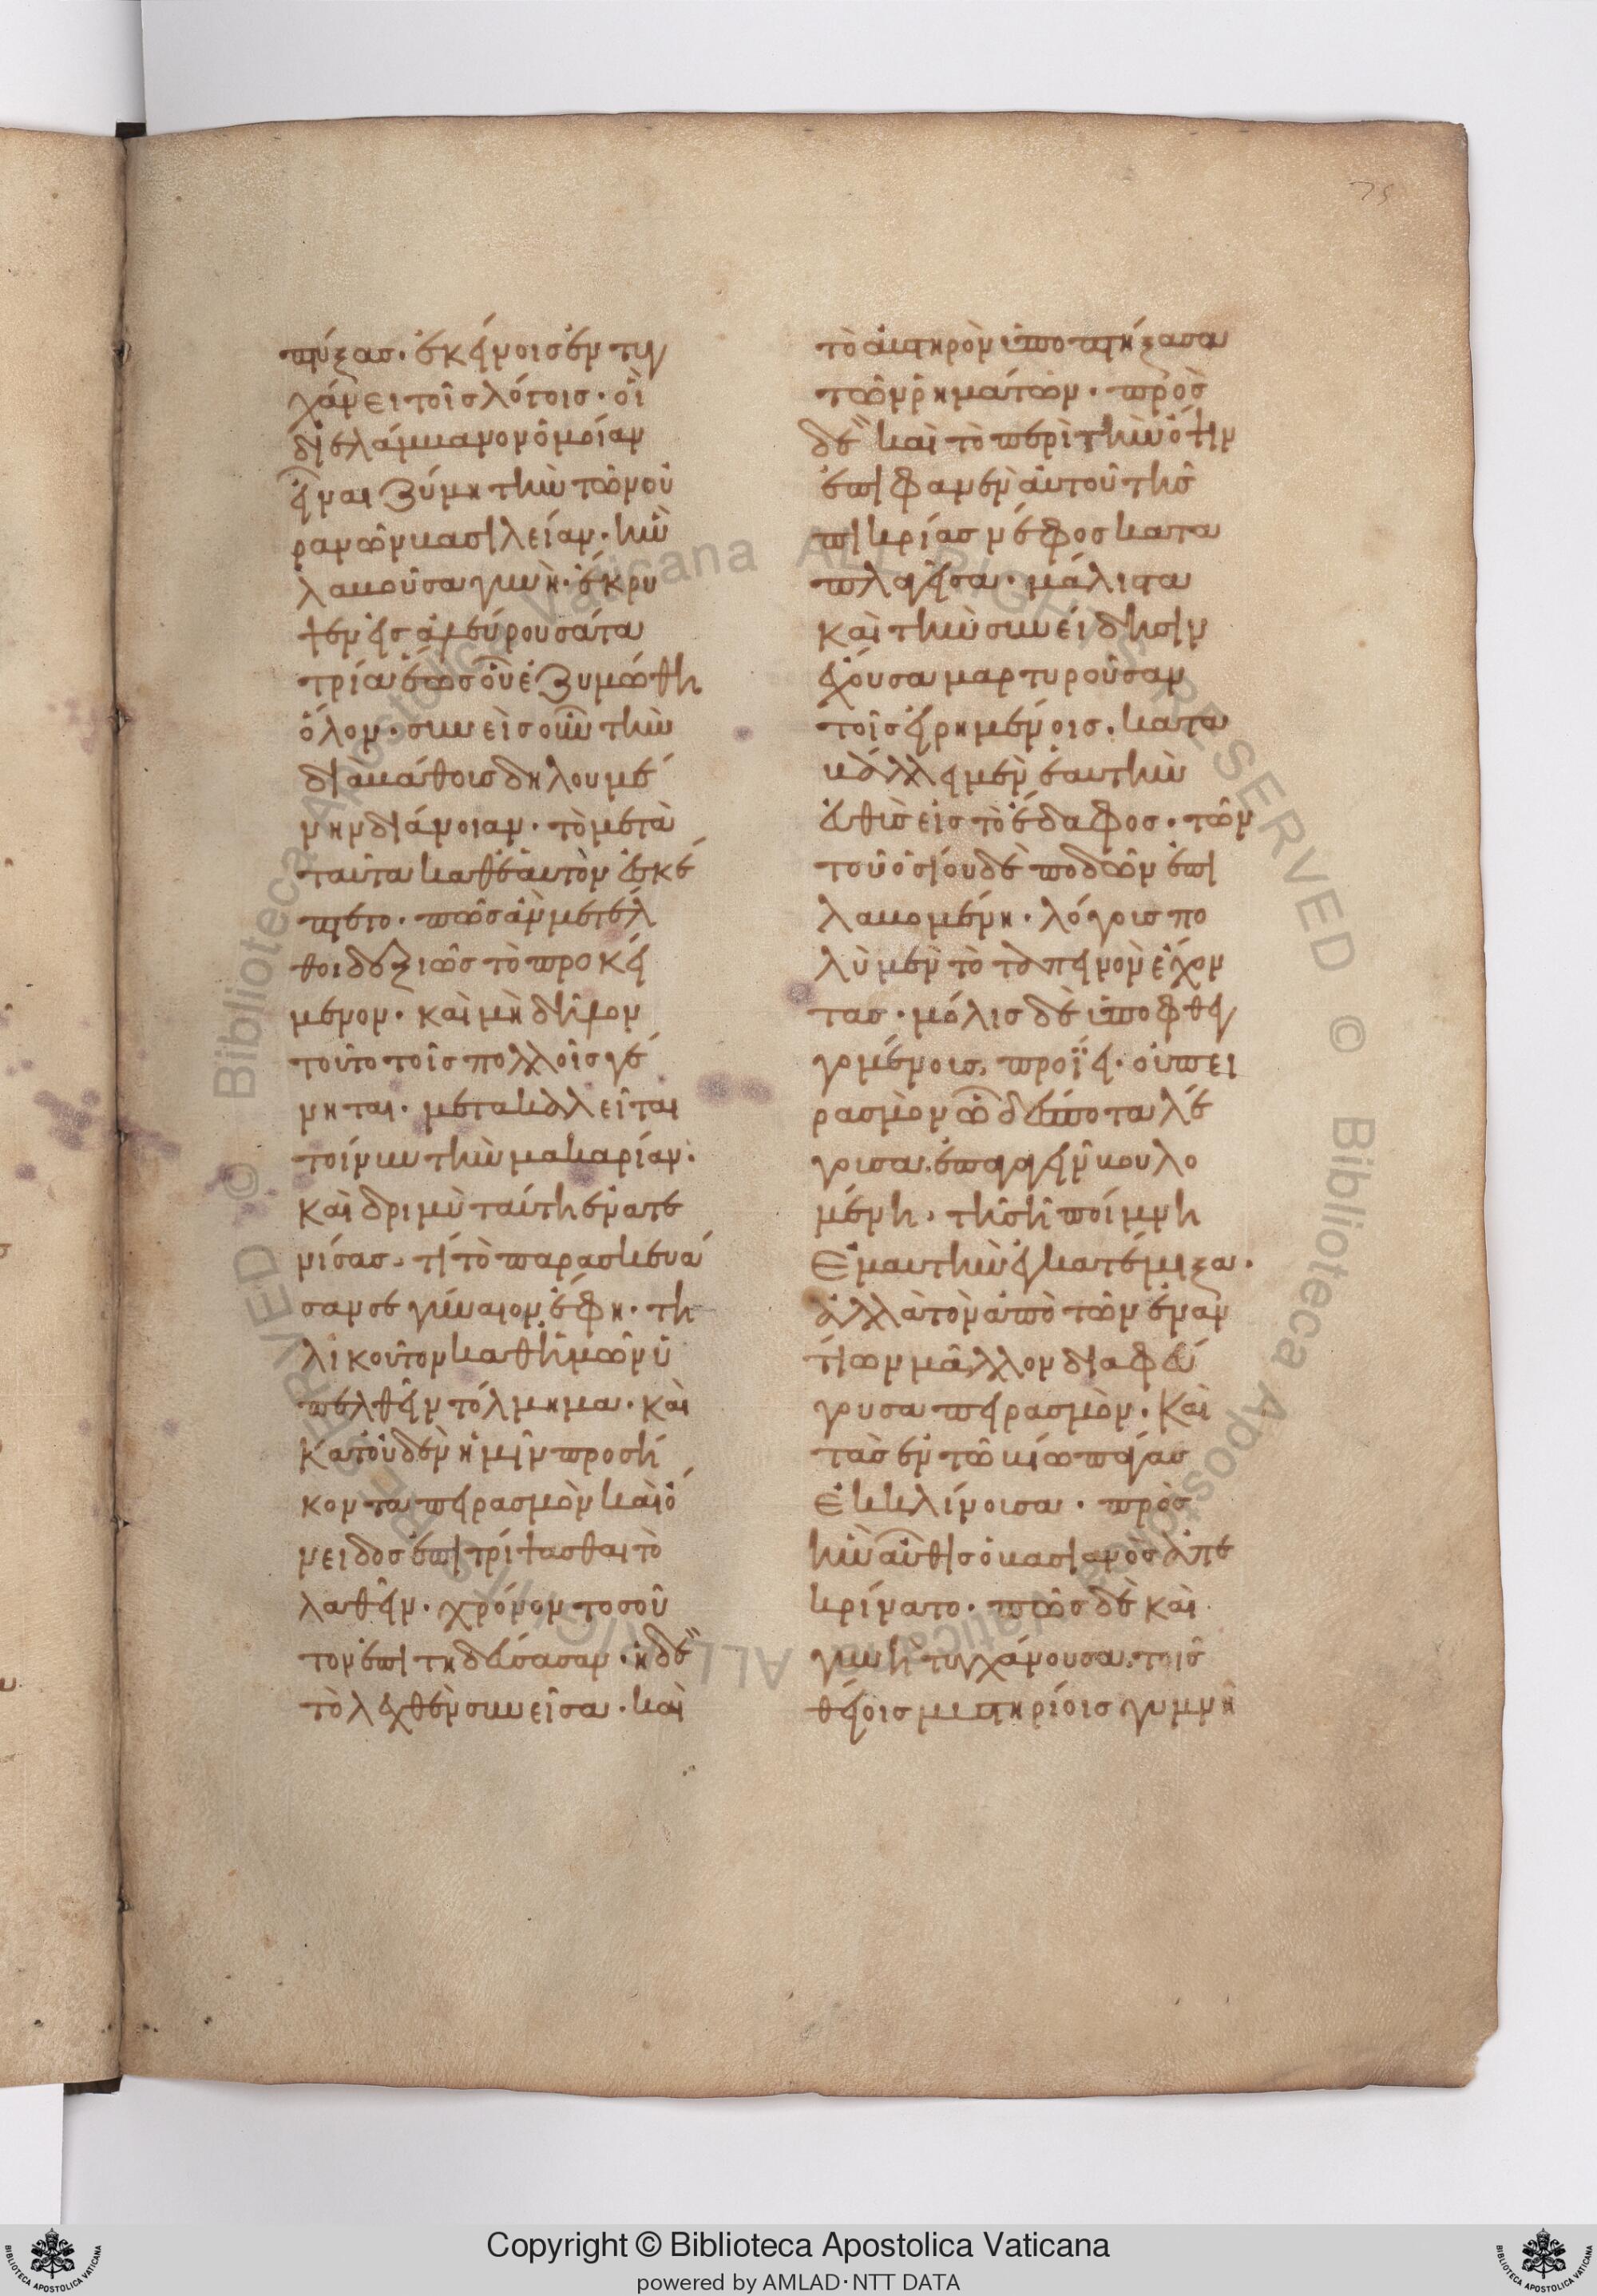 πτύξας· ἐκείνοις ἐντυγ
χάνει τοῖς λόγοις· οἳ
διελάμβανον ὁμοίαν
εἶναι ζύμη τὴν τῶν οὐ
ρανῶν βασιλείαν· ἣν
λαβοῦσα γυνὴ· ἔκρυ
ψεν εἰς ἀλεύρου σάτα
τρία ἕως οὗ ἐζυμώθη
ὅλον· συνεὶς οὖν τὴν
διὰ βάθους δηλουμέ
νην διάνοιαν· τὸ μετὰ
ταῦτα καθ' ἑαυτὸν ἐσκέ
πτετο· πῶς ἂν μετέλ
θοι δεξιῶς τὸ προκεί
μενον· καὶ μὴ δῆλον
τοῦτο τοῖς πολλοῖς γέ
νηται· μετακαλεῖται
τοίνυν τὴν μακαρίαν·
καὶ δριμὺ ταύτη ἐνατε
νίσας, τί τὸ παρασκευά
σαν σε γύναιον ἔφη· τη
λικοῦτον καθ' ἡμῶν ὑ
πελθεῖν τόλμημα· καὶ
κατ' οὐδὲν ἡμῖν προσή
κοντα πειρασμὸν καὶ ὄ
νειδος ἐπιτρίψασθαι τὸ
λαθεῖν· χρόνον τοσοῦ
τον ἐπιτηδεύσασαν· ἡ δὲ
τὸ λεχθὲν συνεῖσα· καὶ
τὸ αὐστηρὸν ὑποπτήξασα
τῶν ῥημάτων· πρὸς
δὲ καὶ τὸ περὶ τὴν ὄψιν
ἐπιφανὲν αὐτοῦ τῆς
πικρίας νέφος κατα
πλαγεῖσα· μάλιστα
καὶ τὴν συνείδησιν
ἔχουσα μαρτυροῦσαν
τοῖς εἰρημένοις· κατα
βάλλει μὲν ἑαυτὴν
εὐθὺς εἰς τὸ ἔδαφος· τῶν
τοῦ ὁσίου δὲ ποδῶν ἐπι
λαβομένη· λόγοις πο
λὺ μὲν τὸ ταπεινὸν ἔχου
τας· μόλις δὲ ὑποφθεγ
γομένοις, προΐει· οὐ πει
ρασμὸν ὧδέ ποτα λέ
γουσα· ἐπαγαγεῖν βουλο
μένη, τῇ σῇ ποίμνῃ
Ἐμαυτὴν ἐγκατέμιξα·
ἀλλὰ τὸν ἀπὸ τῶν ἐναν
τίων μᾶλλον διαφεύ
γουσα πειρασμὸν· καὶ
τὰς ἐν τῶ βίω παγίας
Ἐκκλίνουσα· πρὸς
ἣν αὖθις ὁ βασιανὸς ἀπε
κρίνατο· πῶς δὲ καὶ
γυνὴ τυγχάνουσα, τοῖς
θείοις μυστηρίοις γυμνῆ